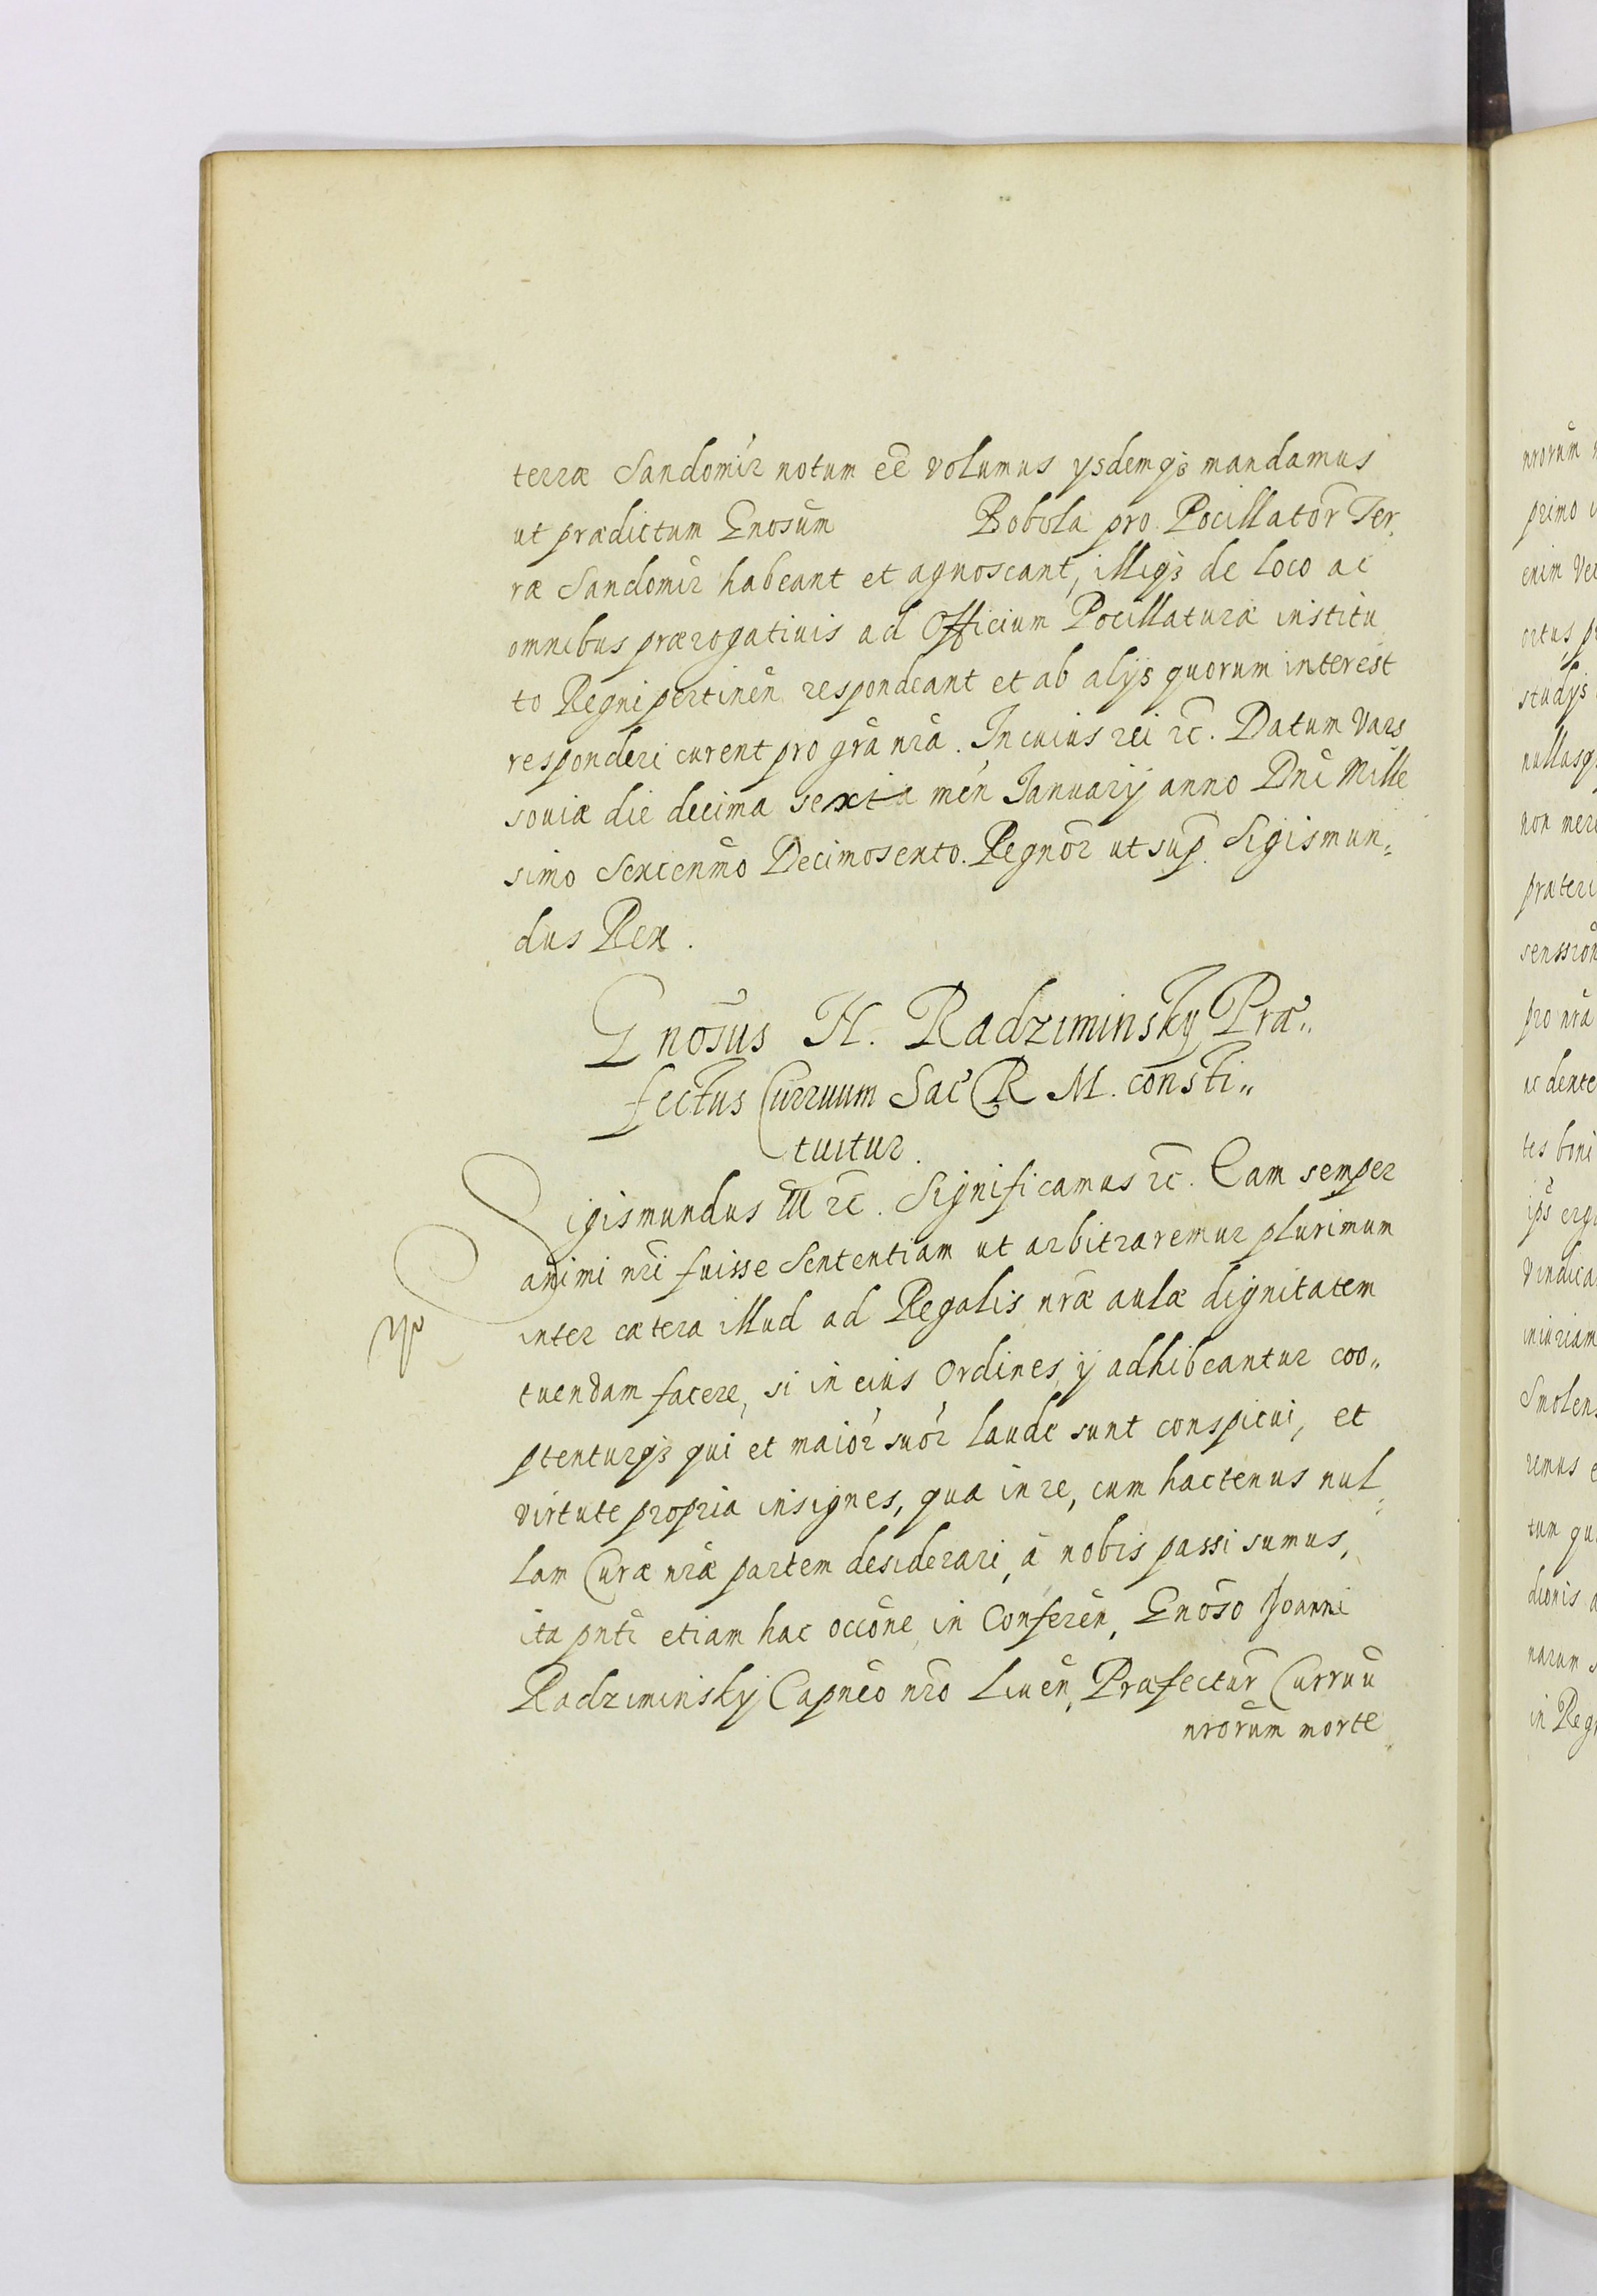 terræ Sandomir notum eē volumus ysdemqȝ mandamus
ut prædictum Gnosūm Bobola pro Pocillatōr Ter,
ræ Sandomir habeant et agnoscant, illiqȝ de loco ac
omnibus prærogatiuis ad Officium Pocillaturæ institu
to Regni pertinēn respondeant et ab alijs quorum interest
responderi curent pro grā nrā. In cuius rei rc̄. Datum Vars
souiæ die decima sexta mēn Ianuarij anno Dnī Mille
simo Sexcenmō Decimosexto. Regnōr ut sup̄. Sigismun,,
dus Rex.
Gnōsus H. Radziminsky Præ,,
fectus Curruum Sac̄ R M. consti,,
tuitur.
Sigismundus III rc̄. Significamus rc̄. Eam semper
animi nrī fuisse Sententiam ut arbitraremur plurimum
inter cætera illud ad Regalis nrǣ aulæ dignitatem
tuendam facere, si in eius Ordines, ij adhibeantur coo,,
ptenturqȝ qui et maiōr suōr laude sunt conspicui, et
virtute propria insignes, qua in re, cum hactenus nul,,
lam Curæ nrǣ partem desiderari, à nobis passi sumus,
ita pntī etiam hac occōne, in Conferēn, Gnōso Joanni
Radziminskij Capnēo nrō Liuēn, Præfectur̄ Curruū
nrorūm morte
nrorūm
primo
enim
ortus
studijs
nullasqȝ
non
senssion
pro nrā
ac dente
tes boni
Vindica
iniuriam
Smolens
remus
tum
dionis
narum
in Reg